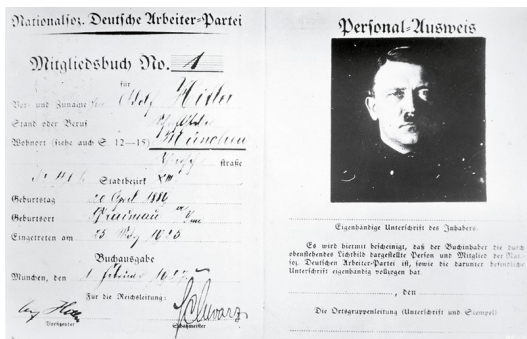 Nationalsoz. Deutsche Arbeiter-Partei
Mitgliedsbuch No. 1
für
Vor- und Zuname Adolf Hitler
Stand oder Beruf
Wohnort (siehe auch S. 12—15) München
straße
Stadtbezirk
Geburtstag 20 April
Geburtsort Braunau
Eingetreten am
Buchausgabe
München, den 1
Für die Reichsleitung:
Schwarz
Schatzmeister
Personal-Ausweis
Eigenhändige Unterschrift des Inhabers.
Es wird hiermit bescheinigt, daß der Buchinhaber die durch
obenstehendes Lichtbild dargestellte Person und Mitglied der Nat.-
soz. Deutschen Arbeiter-Partei ist, sowie die darunter befindliche
Unterschrift eigenhändig vollzogen hat.
, den
Die Ortsgruppenleitung (Unterschrift und Stempel)